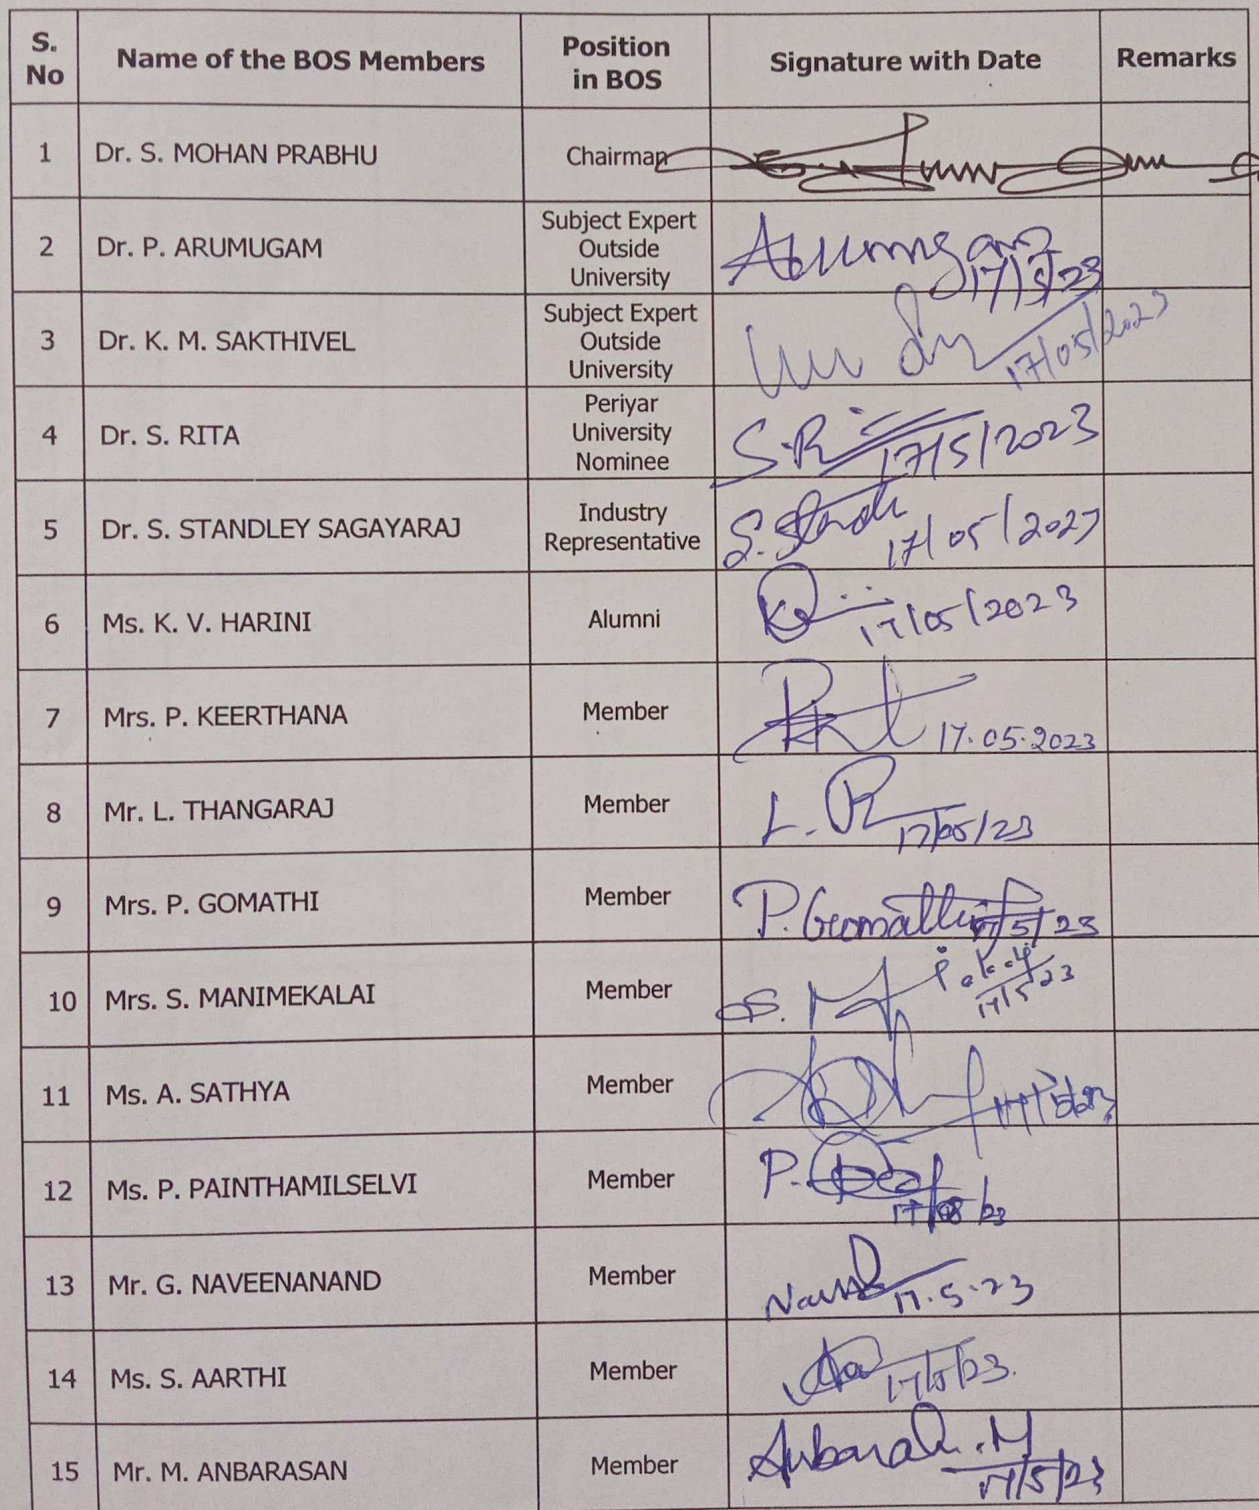 S. No Name of the BOS Members Position in BOS Signature with Date Remarks
1 Dr. S. MOHAN PRABHU Chairman
2 Dr. P. ARUMUGAM Subject Expert Outside University Arumugam 17/5/23
3 Dr. K. M. SAKTHIVEL Subject Expert Outside University 17/05/2023
4 Dr. S. RITA Periyar University Nominee S.R 17/5/2023
5 Dr. S. STANDLEY SAGAYARAJ Industry Representative 17/05/2023
6 Ms. K. V. HARINI Alumni 17/05/2023
7 Mrs. P. KEERTHANA Member 17.05.2023
8 Mr. L. THANGARAJ Member L. 17/05/23
9 Mrs. P. GOMATHI Member P. Gomathi 17/5/23
10 Mrs. S. MANIMEKALAI Member S. 17/5/23
11 Ms. A. SATHYA Member
12 Ms. P. PAINTHAMILSELVI Member P.
13 Mr. G. NAVEENANAND Member 17.5.23
14 Ms. S. AARTHI Member 17/5/23.
15 Mr. M. ANBARASAN Member 17/5/23